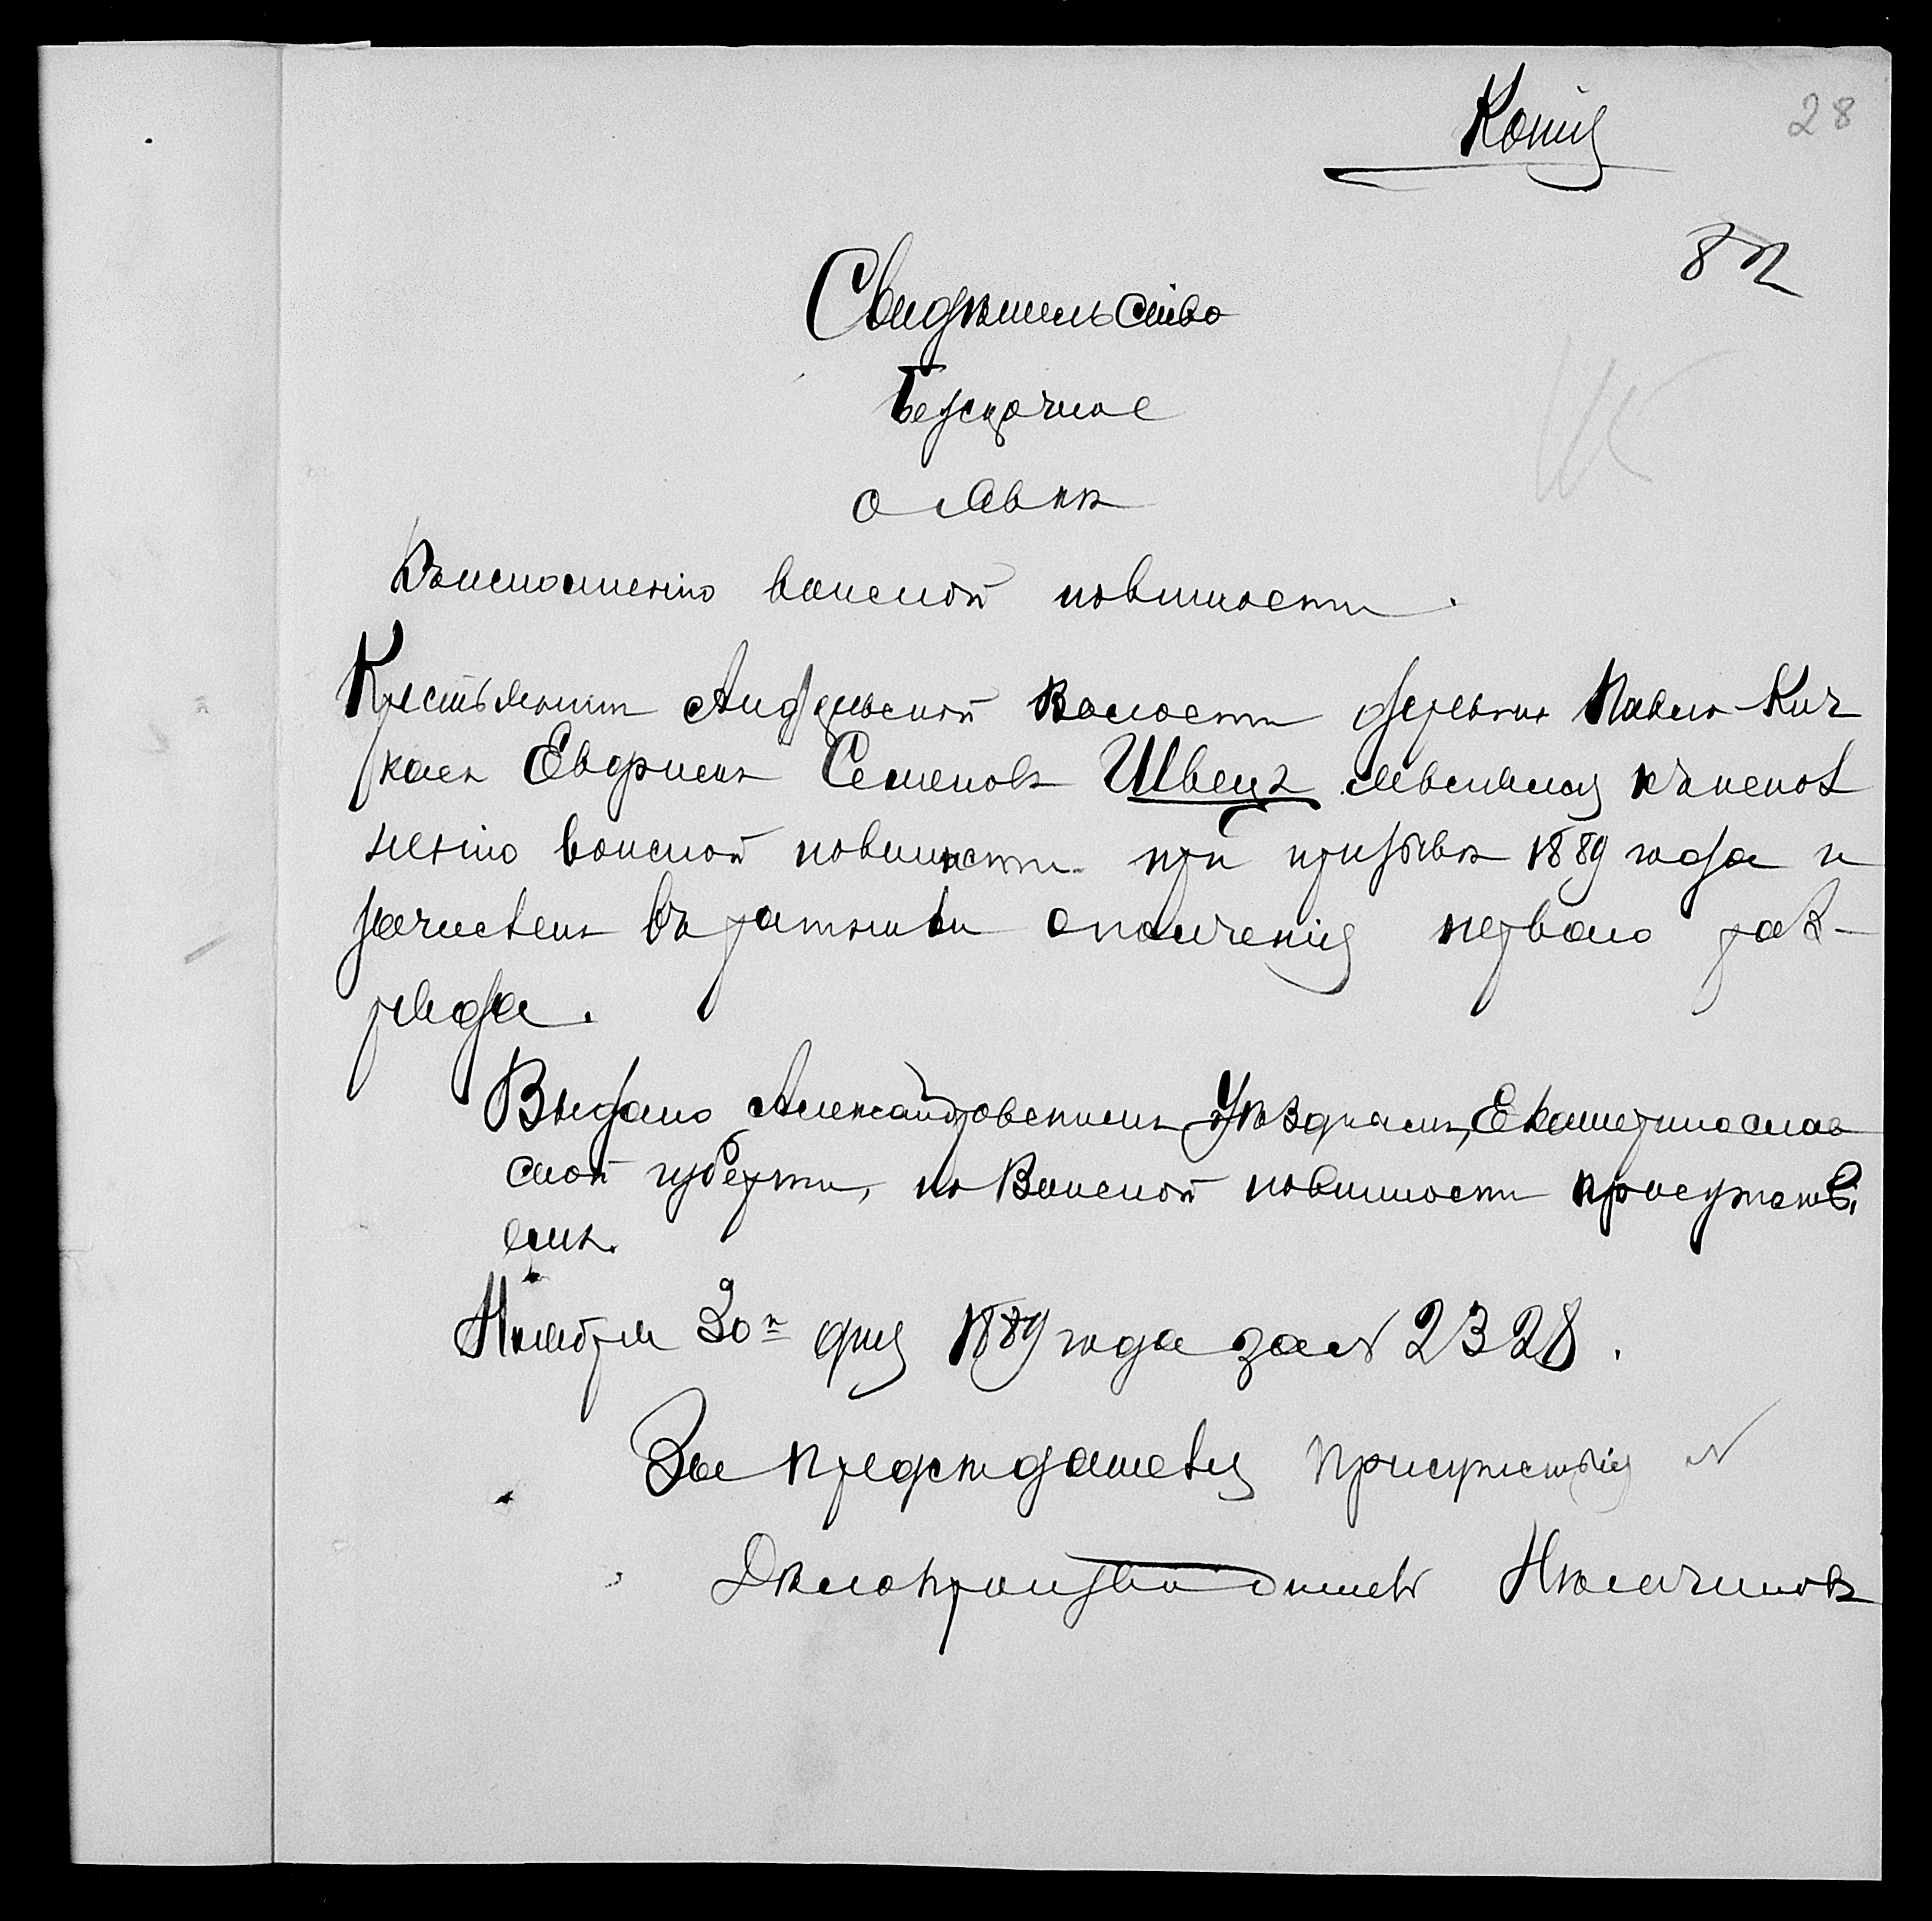 Копія
28
82
Свидѣтельство
Безсрочное
о явкѣ
Къисполненію воинской повинности.
Крестьянинъ Андреевской Волости деревни Павло-Кич
касъ Евфимъ Семеновъ Швецъ являлся къиспол
ненію воинской повинности при призывѣ 1889 года и
зачисленъ въ ратники ополченія перваго раз-
ряда.
Выдано Александровскимъ Уѣзднымъ, Екатеринослав
ской губерніи, по Воинской повинности присутстві
емъ.
Ноября 30 дня 1889 года за № 2328.
За председателя Присутствія
Дѣлопроизводитель